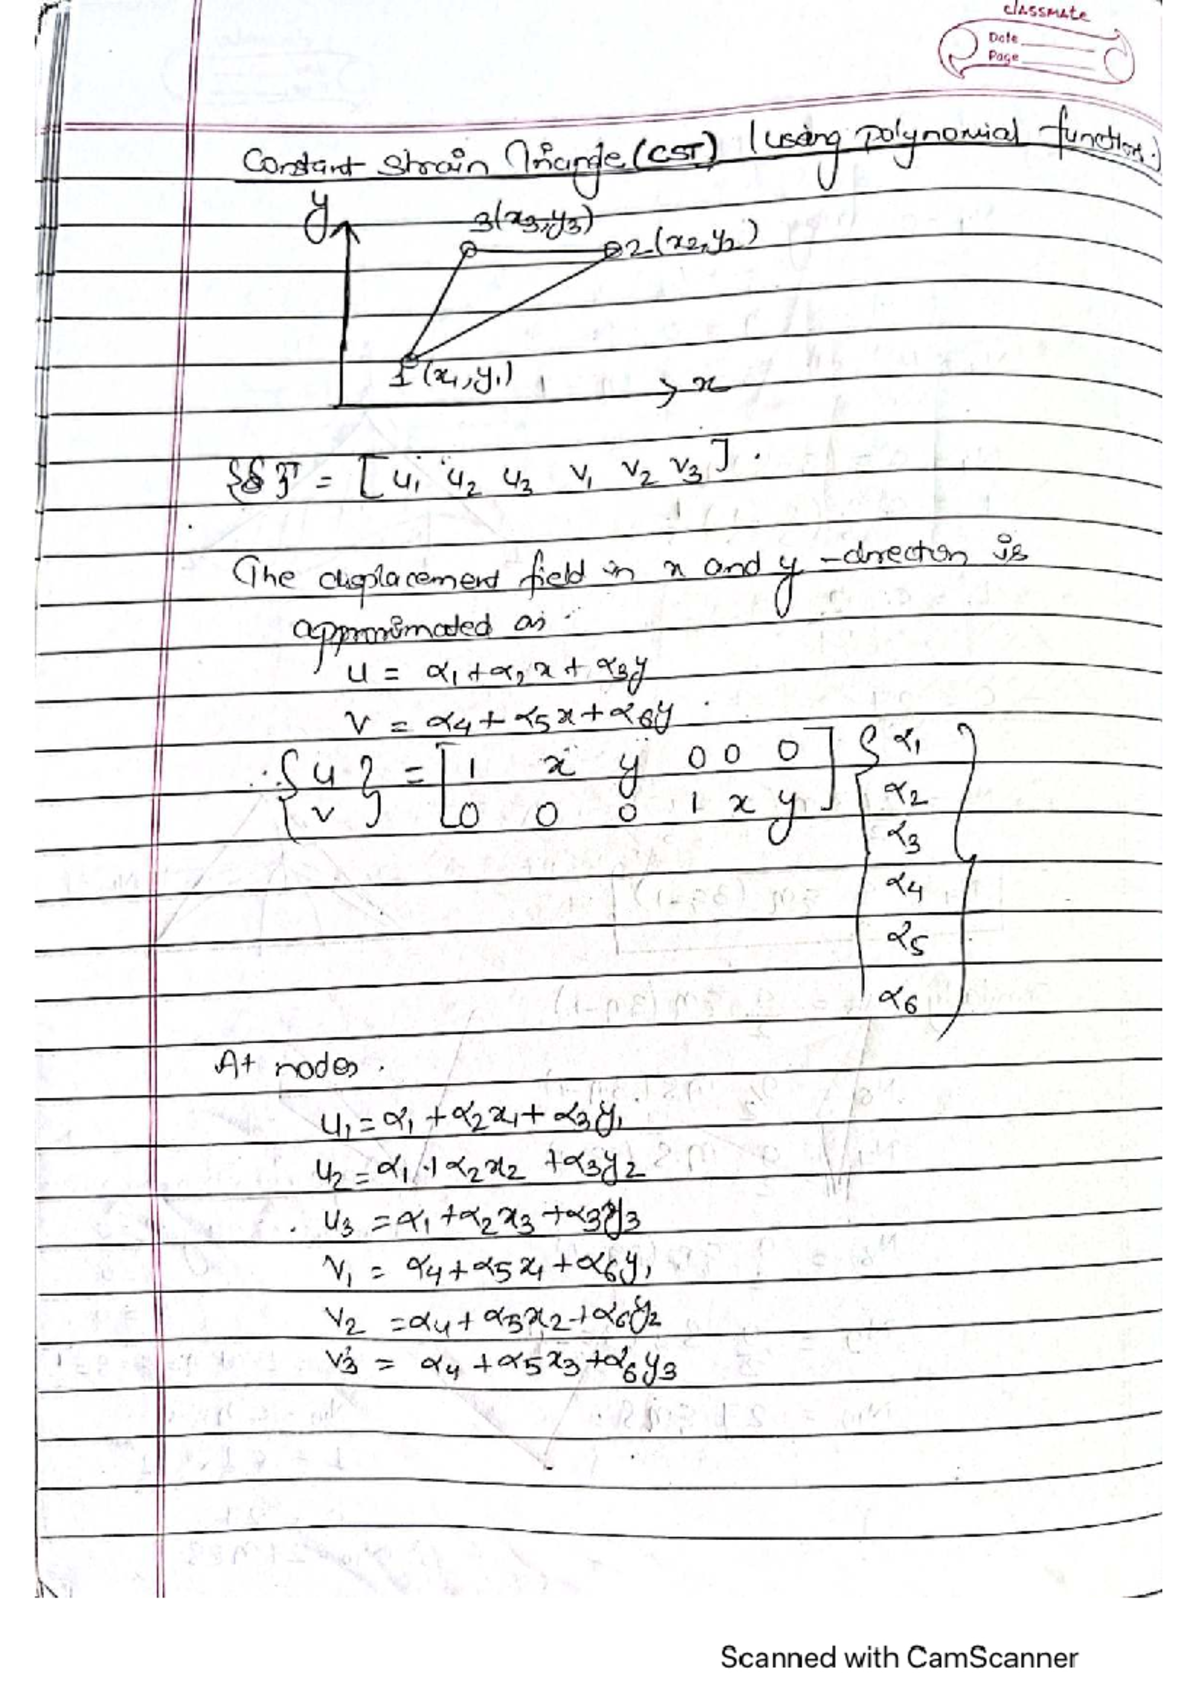 classmate
Date
Page
Constant Strain Triangle (CST) (using polynomial function.)
y
3(x3,y3)
2(x2,y2)
1(x1,y1)
x
{δ}ᵀ = [u1 u2 u3 v1 v2 v3].
The displacement field in x and y -direction is
approximated as
u = α1+α2x+α3y
v = α4+α5x+α6y
∴ {u} = [1 x y 0 0 0] {α1
{v} [0 0 0 1 x y] α2
α3
α4
α5
α6}
At nodes.
u1=α1+α2x1+α3y1
u2=α1+α2x2+α3y2
u3=α1+α2x3+α3y3
v1 = α4+α5x1+α6y1
v2 =α4+α5x2+α6y2
v3 = α4+α5x3+α6y3
Scanned with CamScanner